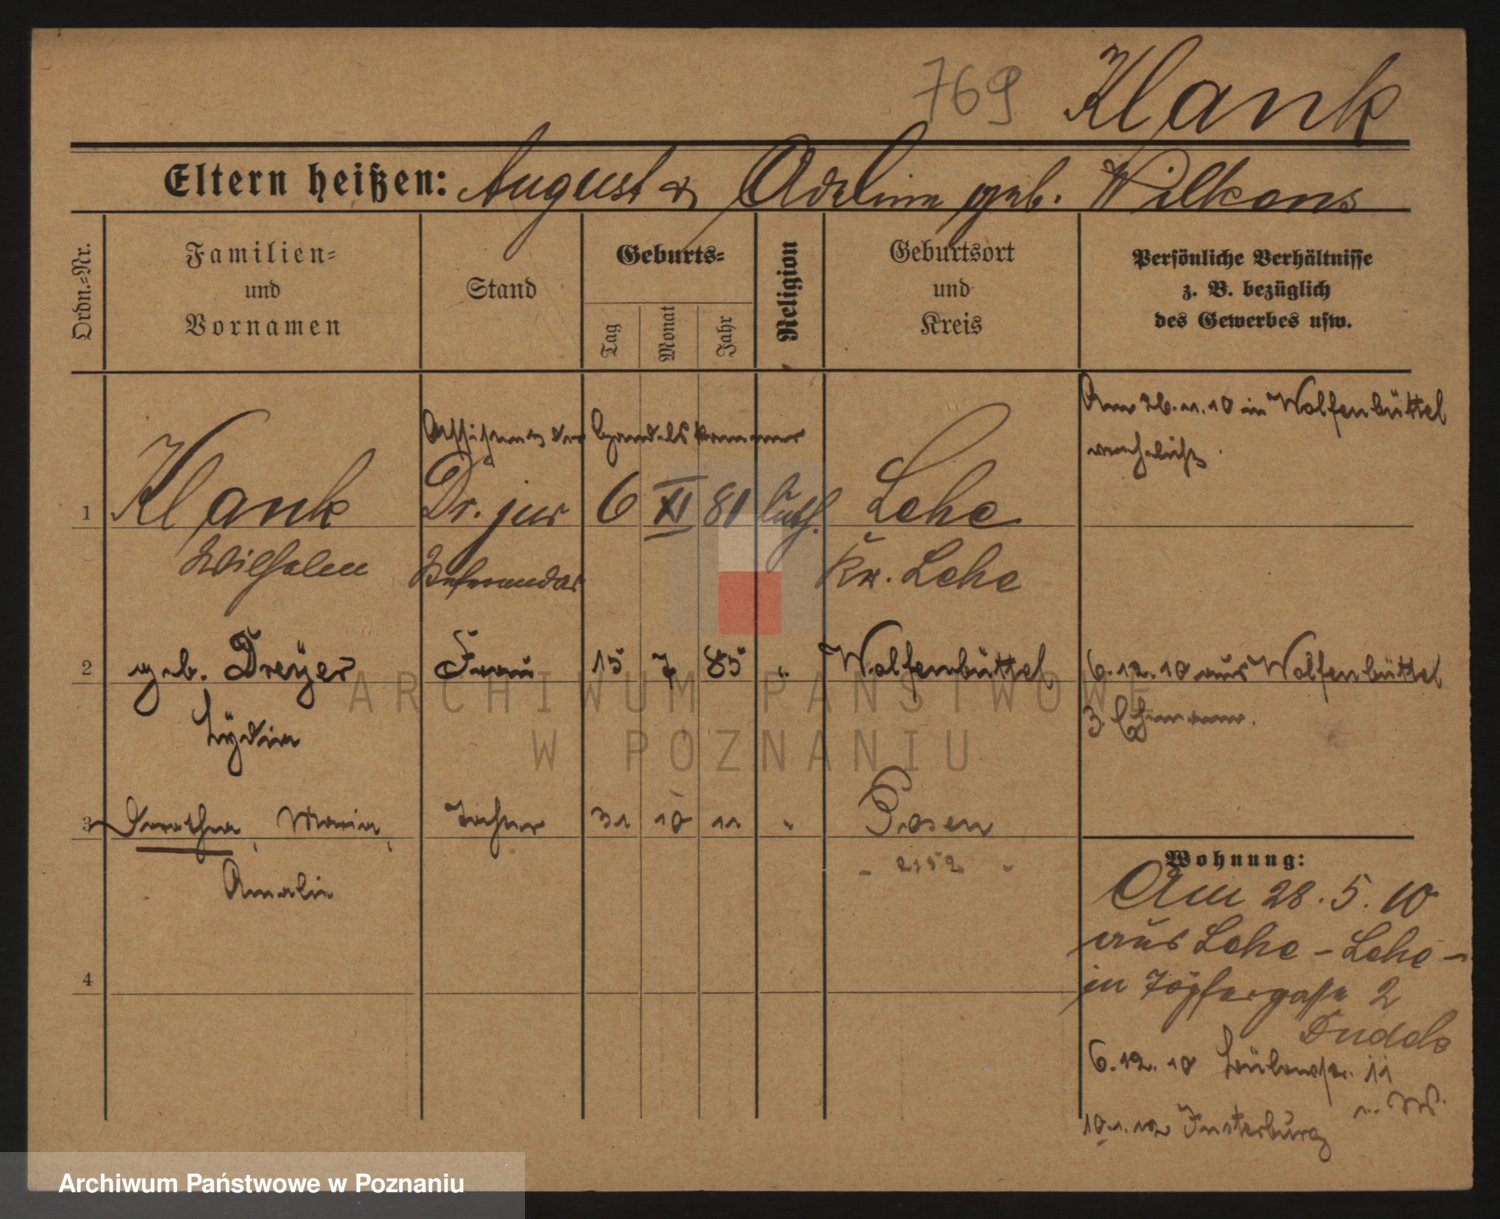 769 Klank
Eltern heißen: August & Adeline geb. Wilkens
Ordn.=Nr.
Familien=
und
Vornamen
Stand
Geburts=
Tag
Monat
Jahr
Religion
Geburtsort
und
Kreis
Persönliche Verhältnisse
z. B. bezüglich
des Gewerbes usw.
Am 26.11.10 in Wolfenbüttel
verehelicht.
Assistent der Handelskammer
1 Klank Dr. jur 6 XI 81 luth. Lehe
Wilhelm Referendar Kr. Lehe
2 geb. Dreyer Frau 15 7 85 " Wolfenbüttel 6.12.10 aus Wolfenbüttel
Lydia z. Ehemann.
3 Dorothea, Maria, Tochter 31 10 11 " Posen
Amalie - 2152 -
Wohnung:
Am 28.5.10
aus Lehe - Lehe -
in Töpfergasse 2
4
6.12.10 Bülowstr. 11
10.1.12 Insterburg
ARCHIWUM PAŃSTWOWE
W POZNANIU
Archiwum Państwowe w Poznaniu